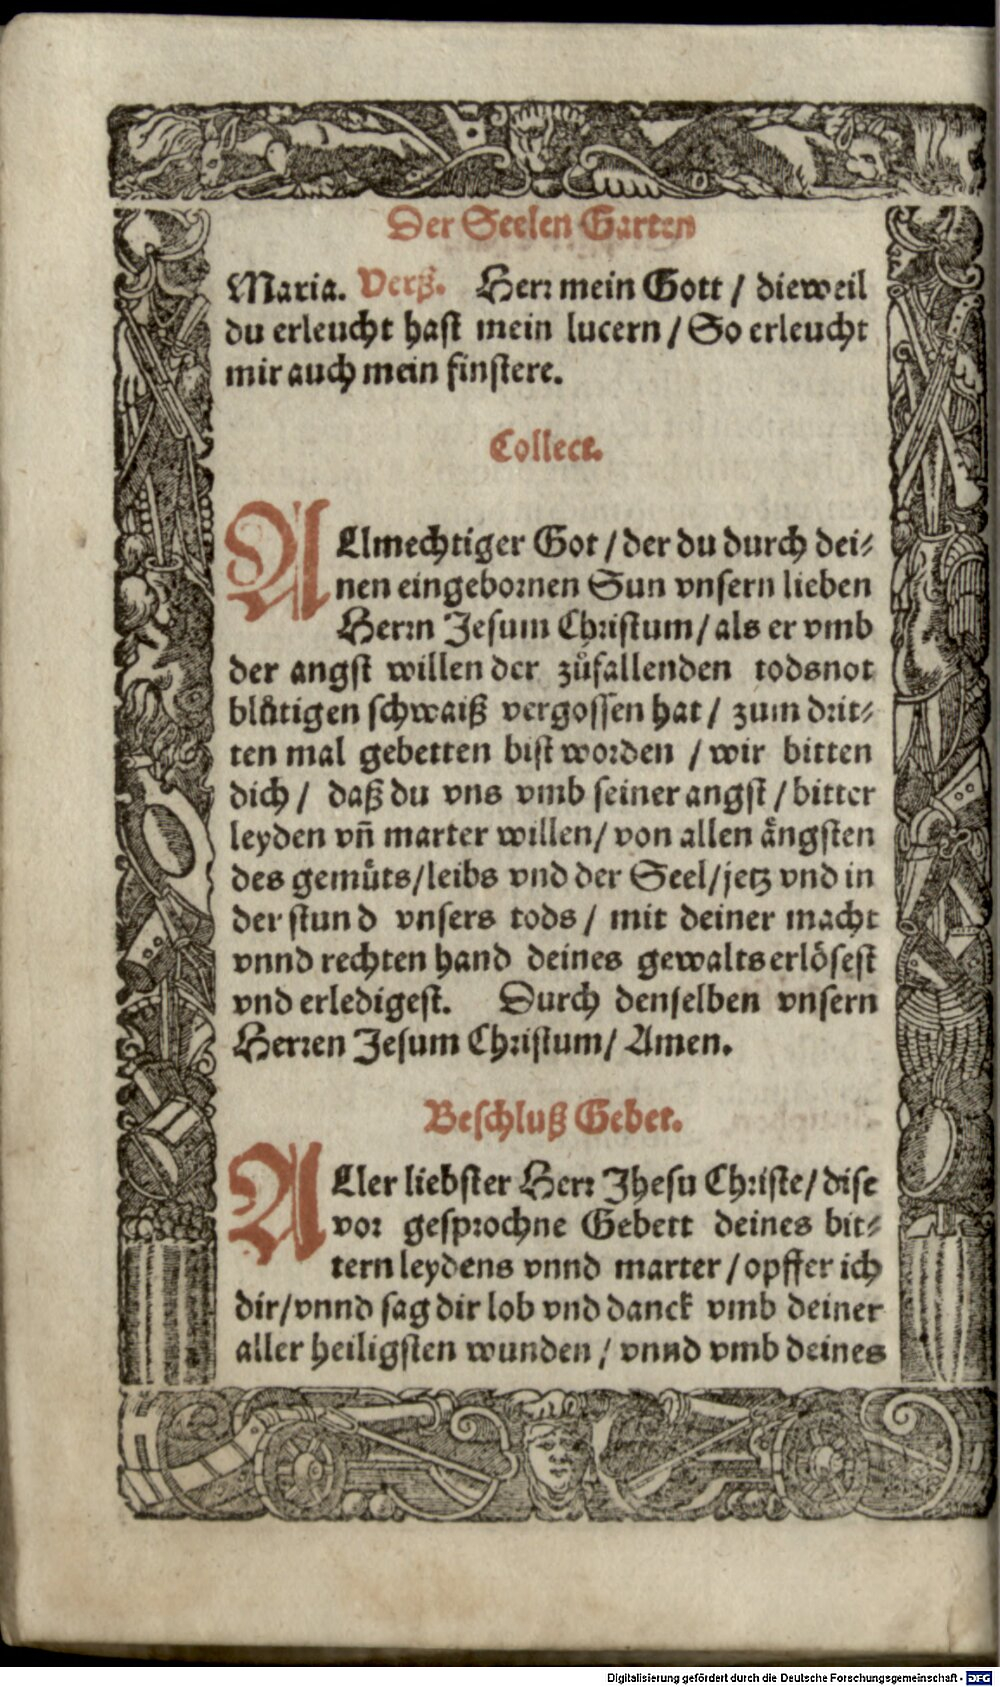 Der Seelen Garten
Maria. Verß. Herr mein Gott / dieweil
du erleucht hast mein lucern / So erleucht
mir auch mein finstere.
Collect.
ALmechtiger Got / der du durch dei⸗
nen eingebornen Sun vnsern lieben
Herrn Jesum Christum / als er vmb
der angst willen der zůfallenden todsnot
blůtigen schwaiß vergossen hat / zum drit⸗
ten mal gebetten bist worden / wir bitten
dich / daß du vns vmb seiner angst / bitter
leyden vñ marter willen / von allen ängsten
des gemüts / leibs vnd der Seel / jetz vnd in
der stund vnsers tods / mit deiner macht
vnnd rechten hand deines gewalts erlösest
vnd erledigest. Durch denselben vnsern
Herren Jesum Christum / Amen.
Beschluß Gebet.
ALler liebster Herr Jhesu Christe / dise
vor gesprochne Gebett deines bit⸗
tern leydens vnnd marter / opffer ich
dir / vnnd sag dir lob vnd danck vmb deiner
aller heiligsten wunden / vnnd vmb deines
Digitalisierung gefördert durch die Deutsche Forschungsgemeinschaft - DFG